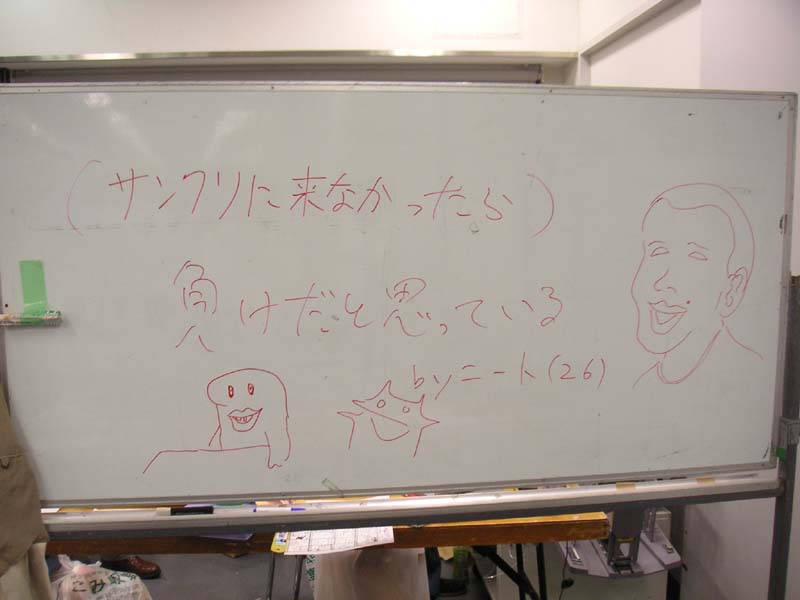 (サンクリに来なかったら)
負けだと思っている
byニート(26)
ごみ